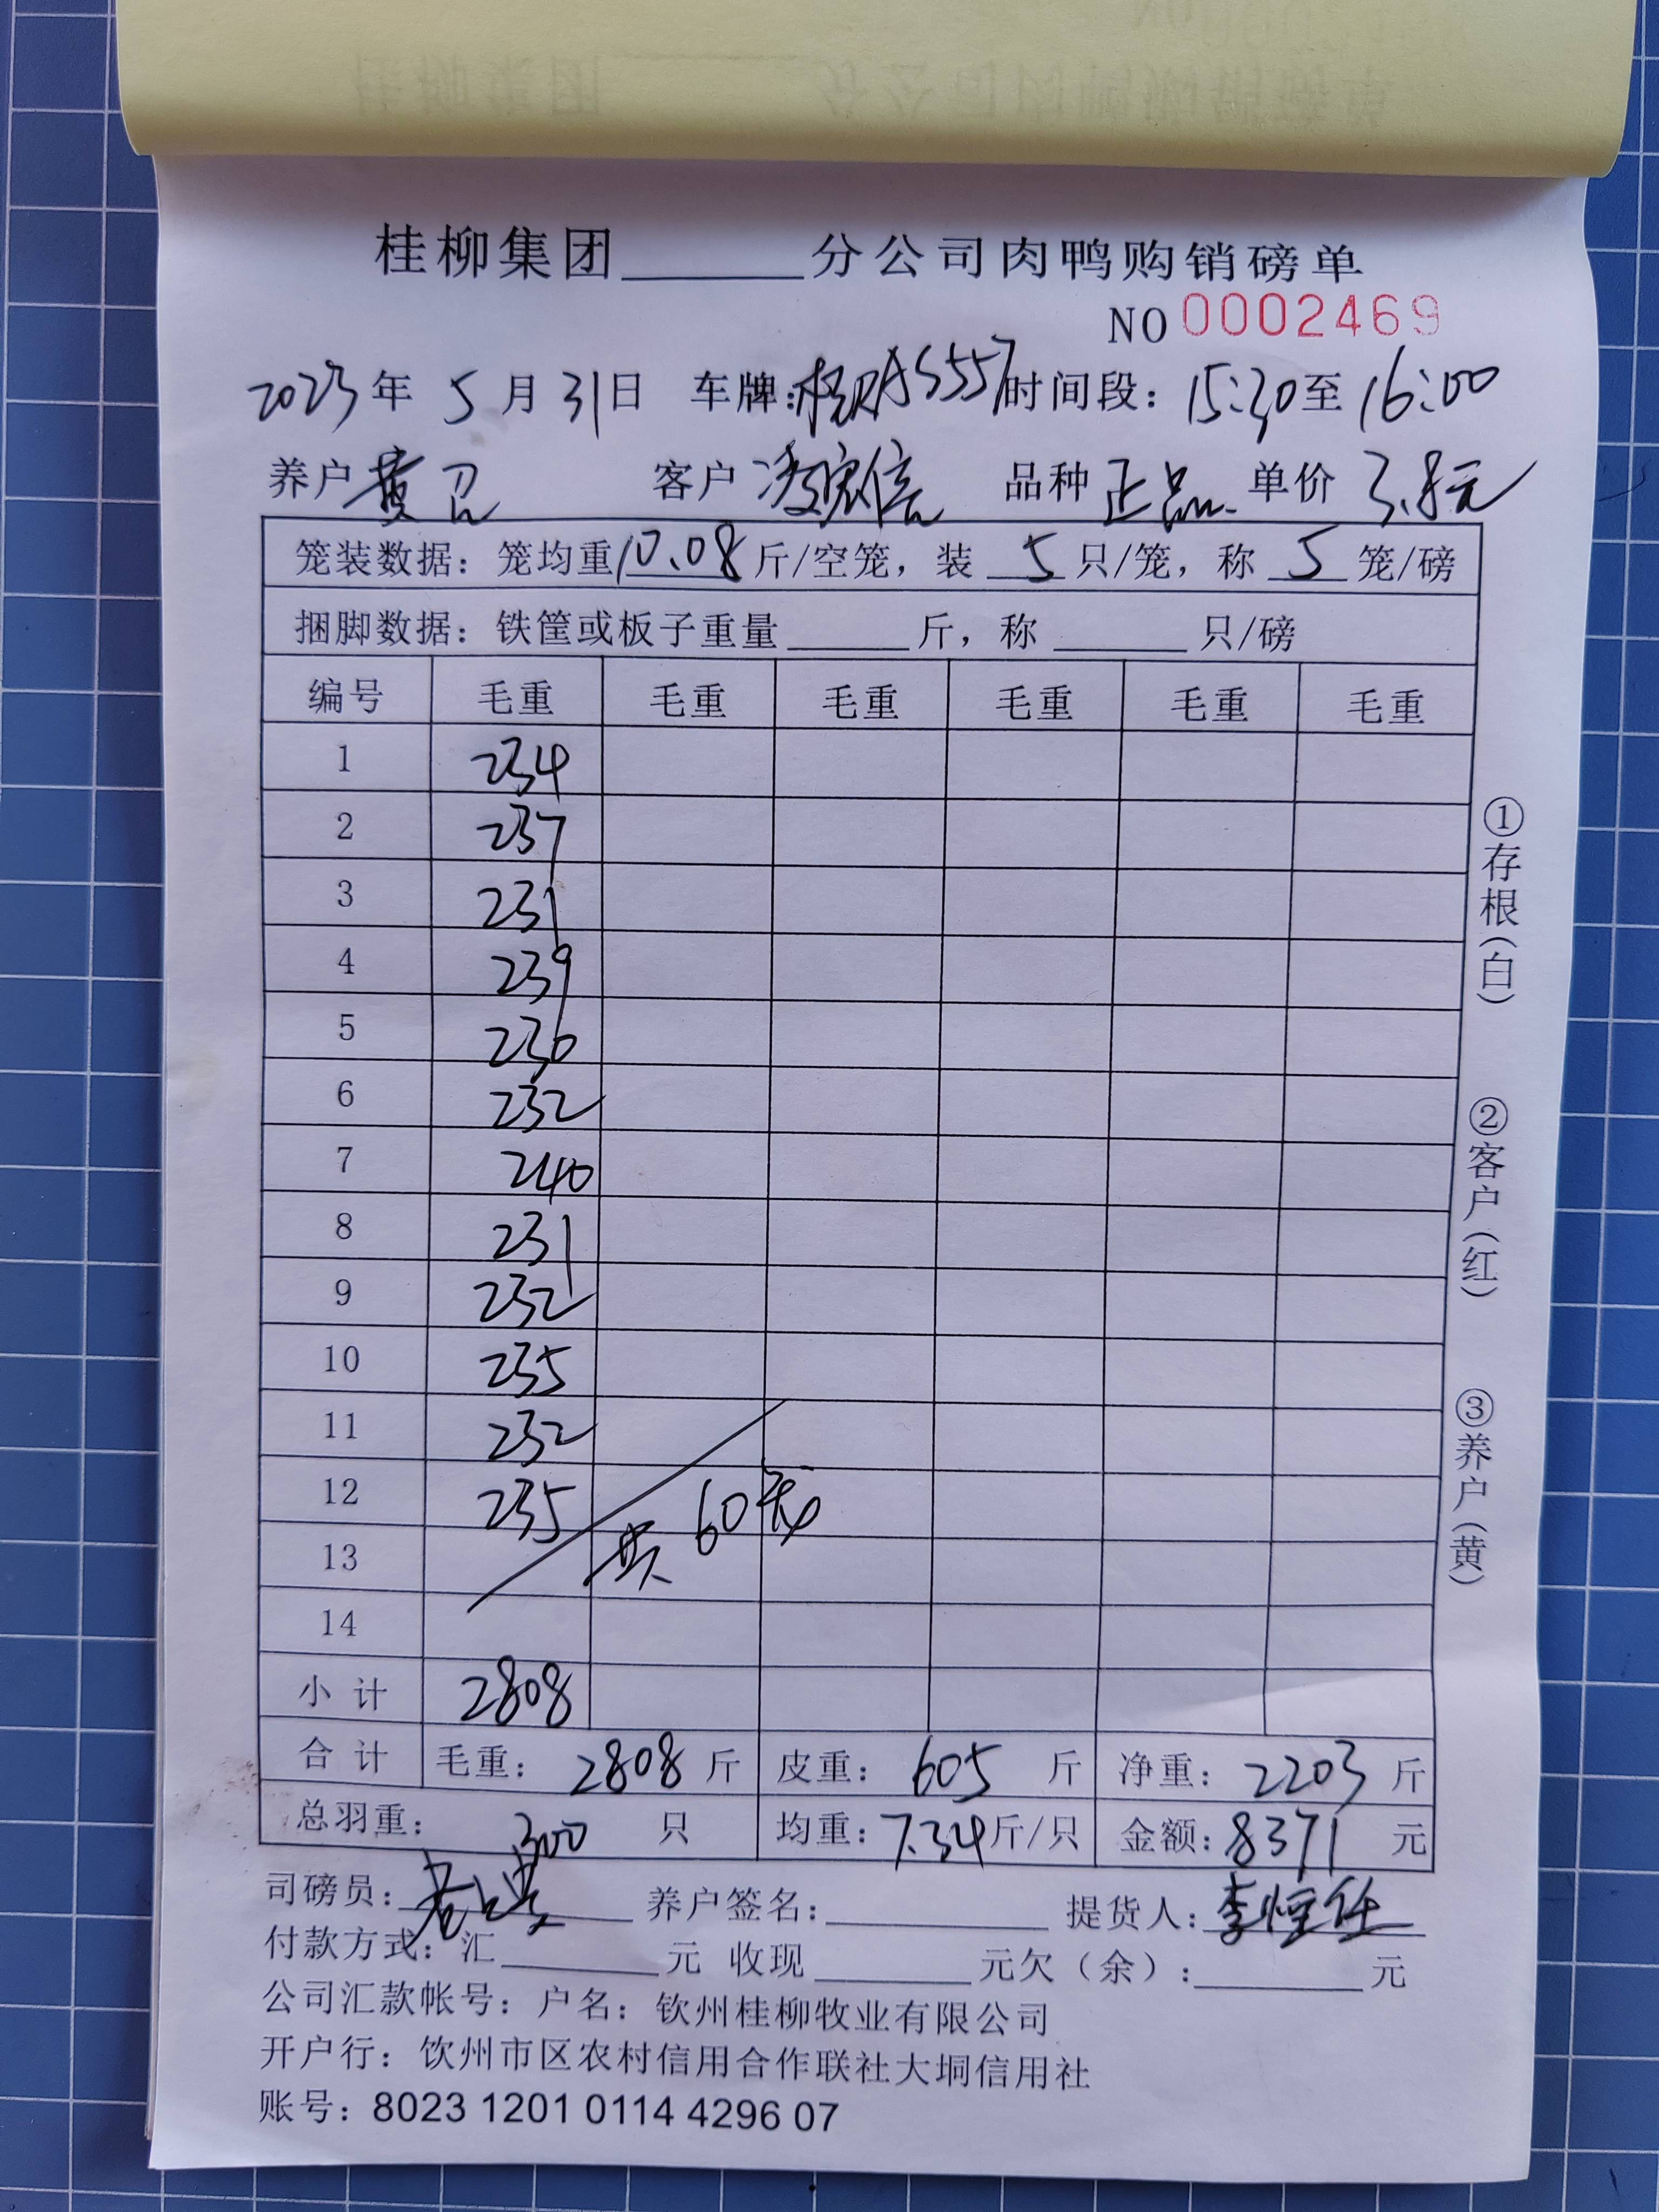 桂柳集团______分公司肉鸭购销磅单
NO 0002469
2023年 5月31日 车牌:桂RA5557 时间段:15:30至16:00
养户 黄召 客户 凌宏信 品种 正品 单价 3.8元
笼装数据:笼均重10.08斤/空笼,装 5 只/笼,称 5 笼/磅
捆脚数据:铁筐或板子重量______斤,称______只/磅
编号 毛重 毛重 毛重 毛重 毛重 毛重
1 234
2 237
3 231
4 239
5 230
6 232
7 240
8 231
9 232
10 235
11 232
12 235 共60笼
13
14
小计 2808
合计 毛重:2808斤 皮重:605斤 净重:2203斤
总羽重:300只 均重:7.34斤/只 金额:8371元
司磅员: 养户签名:______ 提货人:李恒任
付款方式:汇______元 收现______元欠(余):______元
公司汇款帐号:户名:钦州桂柳牧业有限公司
开户行:钦州市区农村信用合作联社大垌信用社
账号:8023 1201 0114 4296 07
①存根(白)
②客户(红)
③养户(黄)